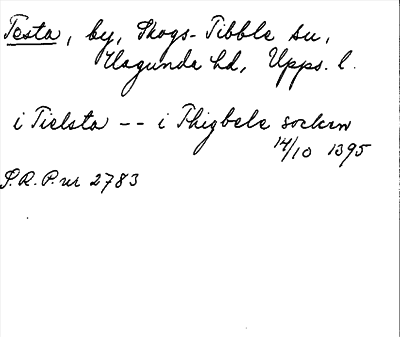 Testa, by, Skogs-Tibble sn,
Hagunda hd, Upps. l.
i Tielsta -- i Thigbele socken
14/10 1395
S.R.P. nr 2783